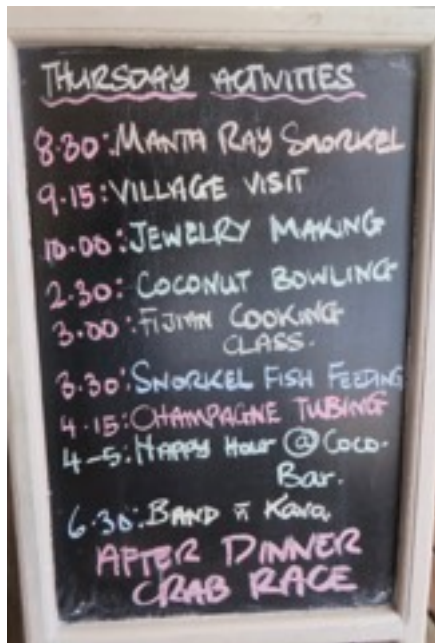 THURSDAY ACTIVITIES
8.30: MANTA RAY SNORKEL
9.15: VILLAGE VISIT
10.00: JEWELRY MAKING
2.30: COCONUT BOWLING
3.00: FIJIAN COOKING
CLASS.
3.30: SNORKEL FISH FEEDING
4.15: CHAMPAGNE TUBING
4-5: HAPPY HOUR @ COCO.
Bar.
6.30: BAND Kava
AFTER DINNER
CRAB RACE